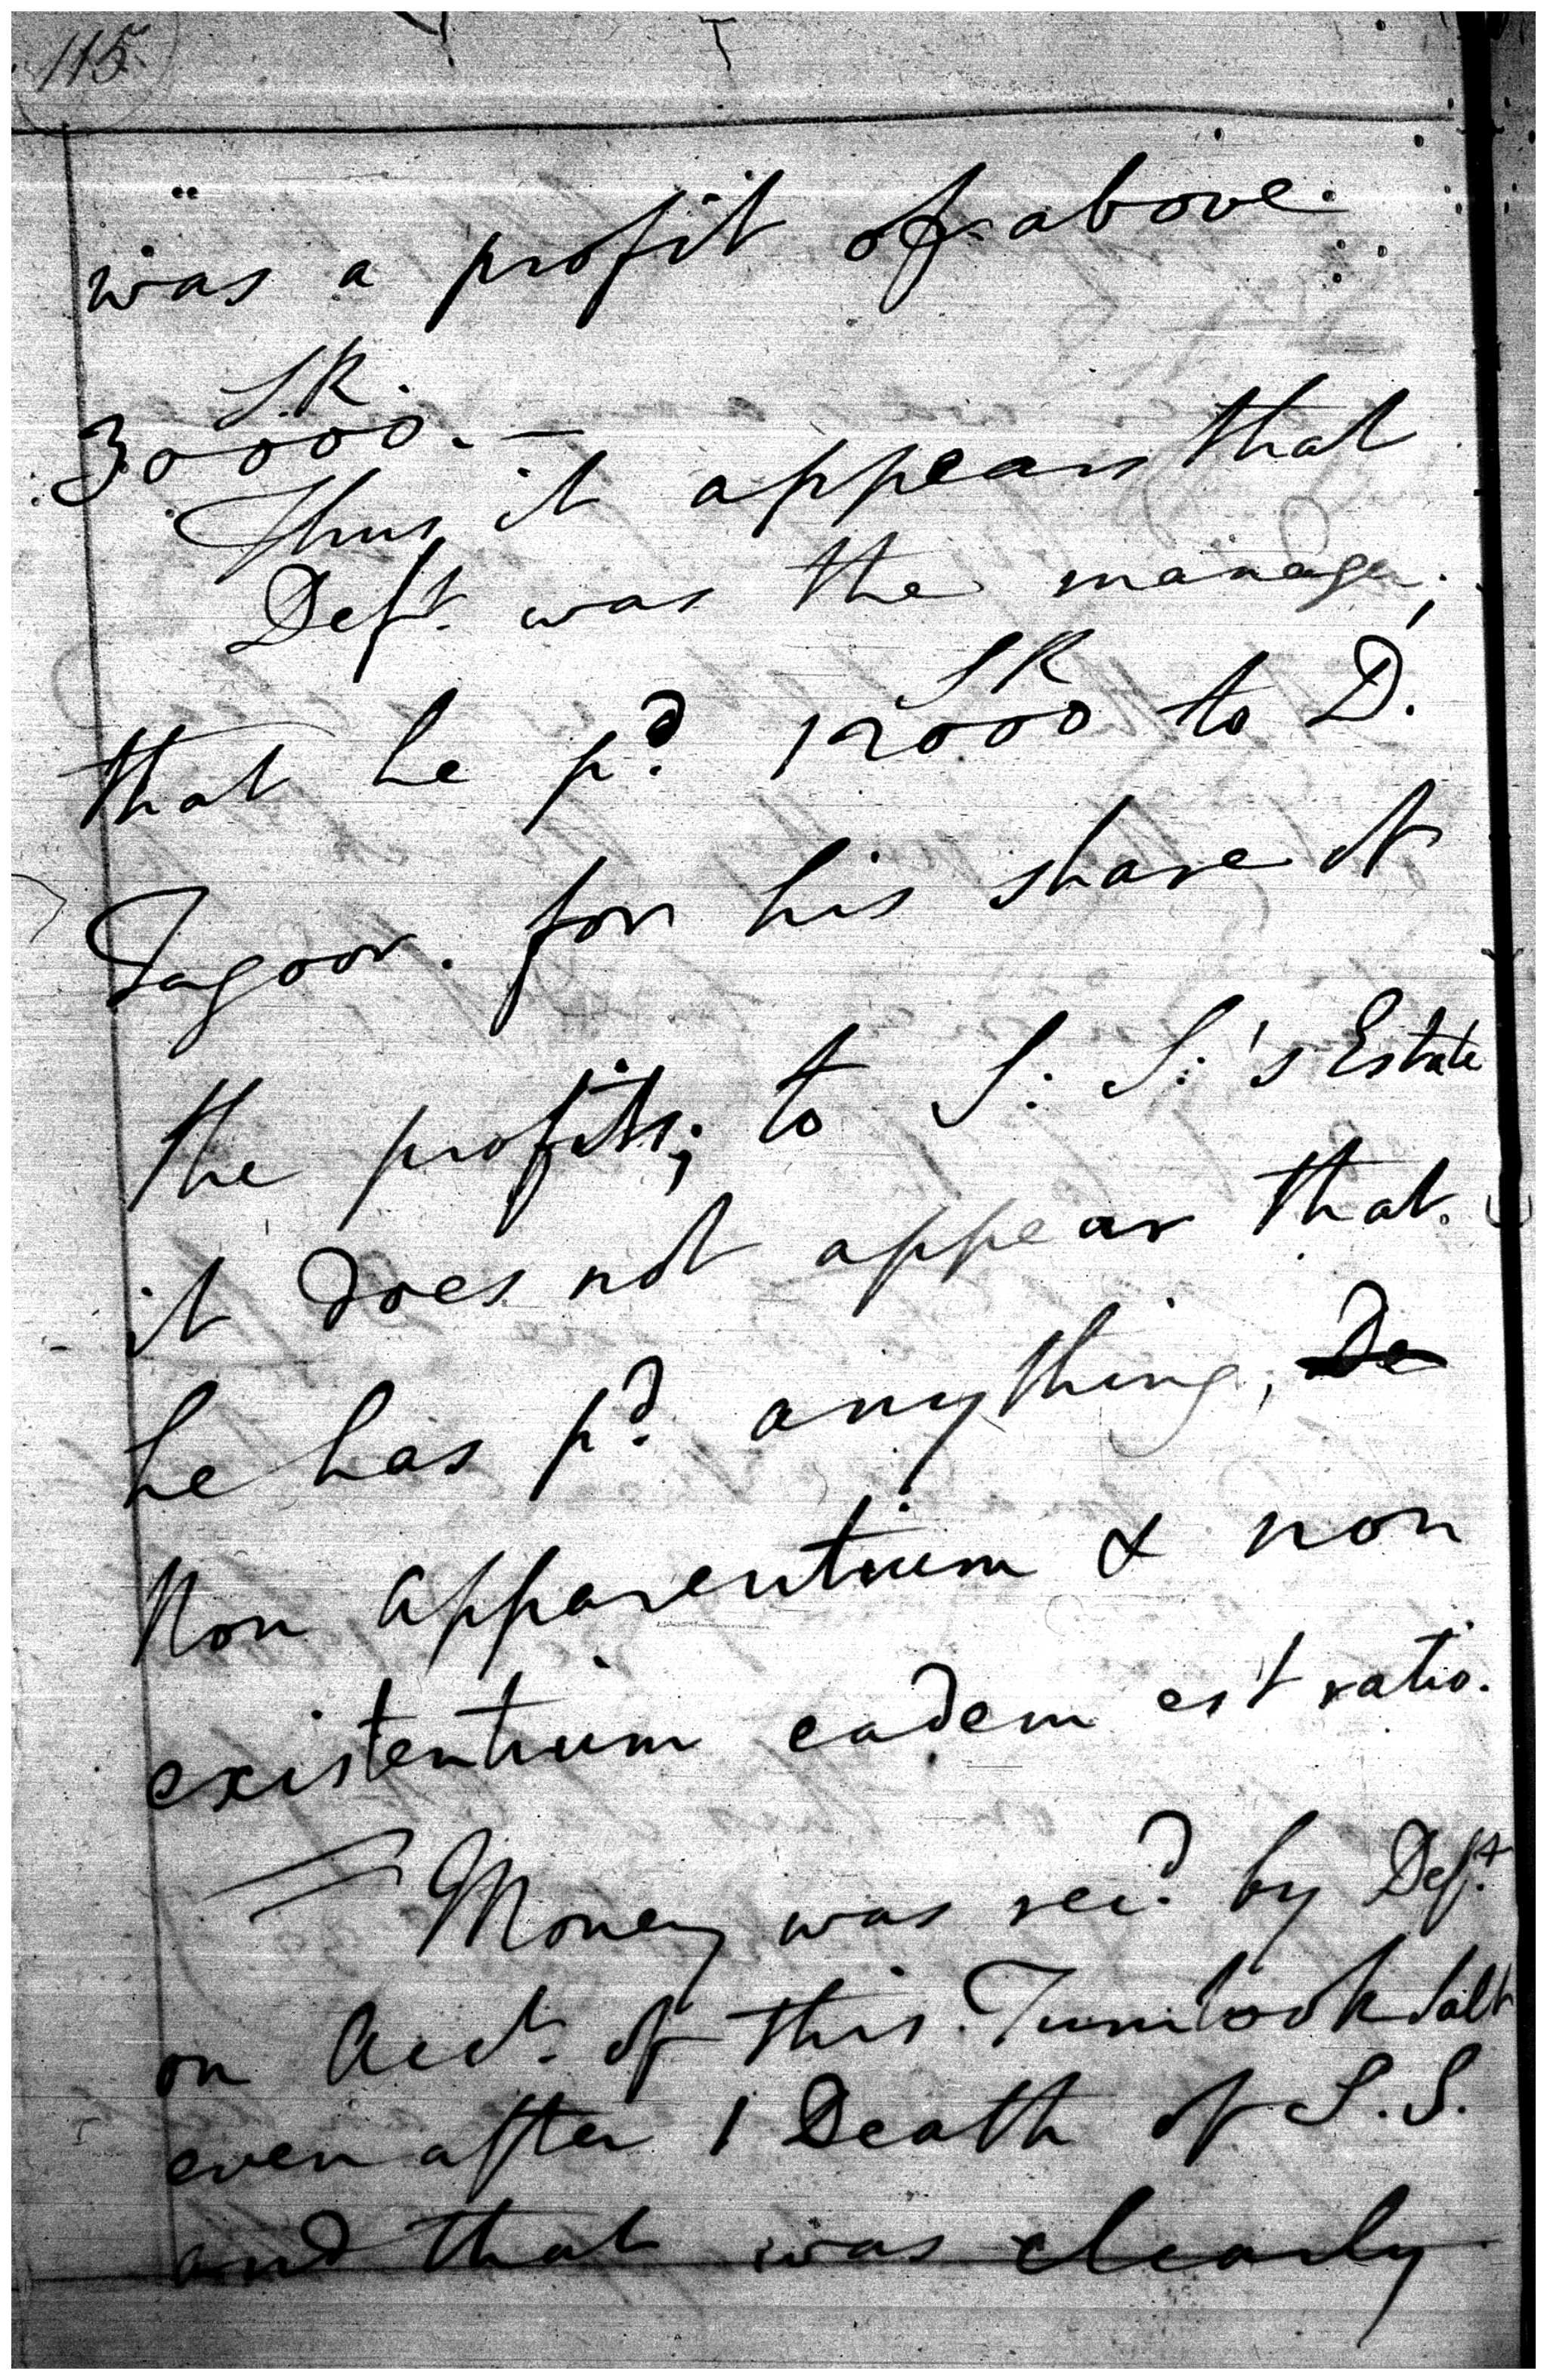 115.
was a profit of above
S.R.
30000. —
Thus it appears that
Deft. was the manager;
that he pd. 12000 SR to D.
Tagoor. for his share of
the profits; to S. S.'s Estate
it does not appear that.
he has pd. anything, De
Non apparentium & non
existentium eadem est ratio.
Money was recd. by Deft.
on Acct. of this Tumlook Salt
even after / Death of S. S.
and that was clearly